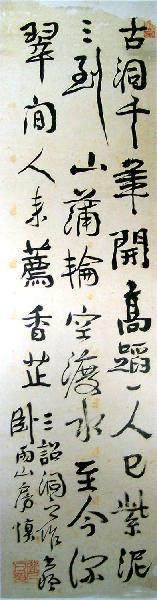 古洞千年開高蹈一人已紫泥
三到山蒲輪空渡水至今深
翠間人来薦香芷
三詔洞之作為
臥雨山房